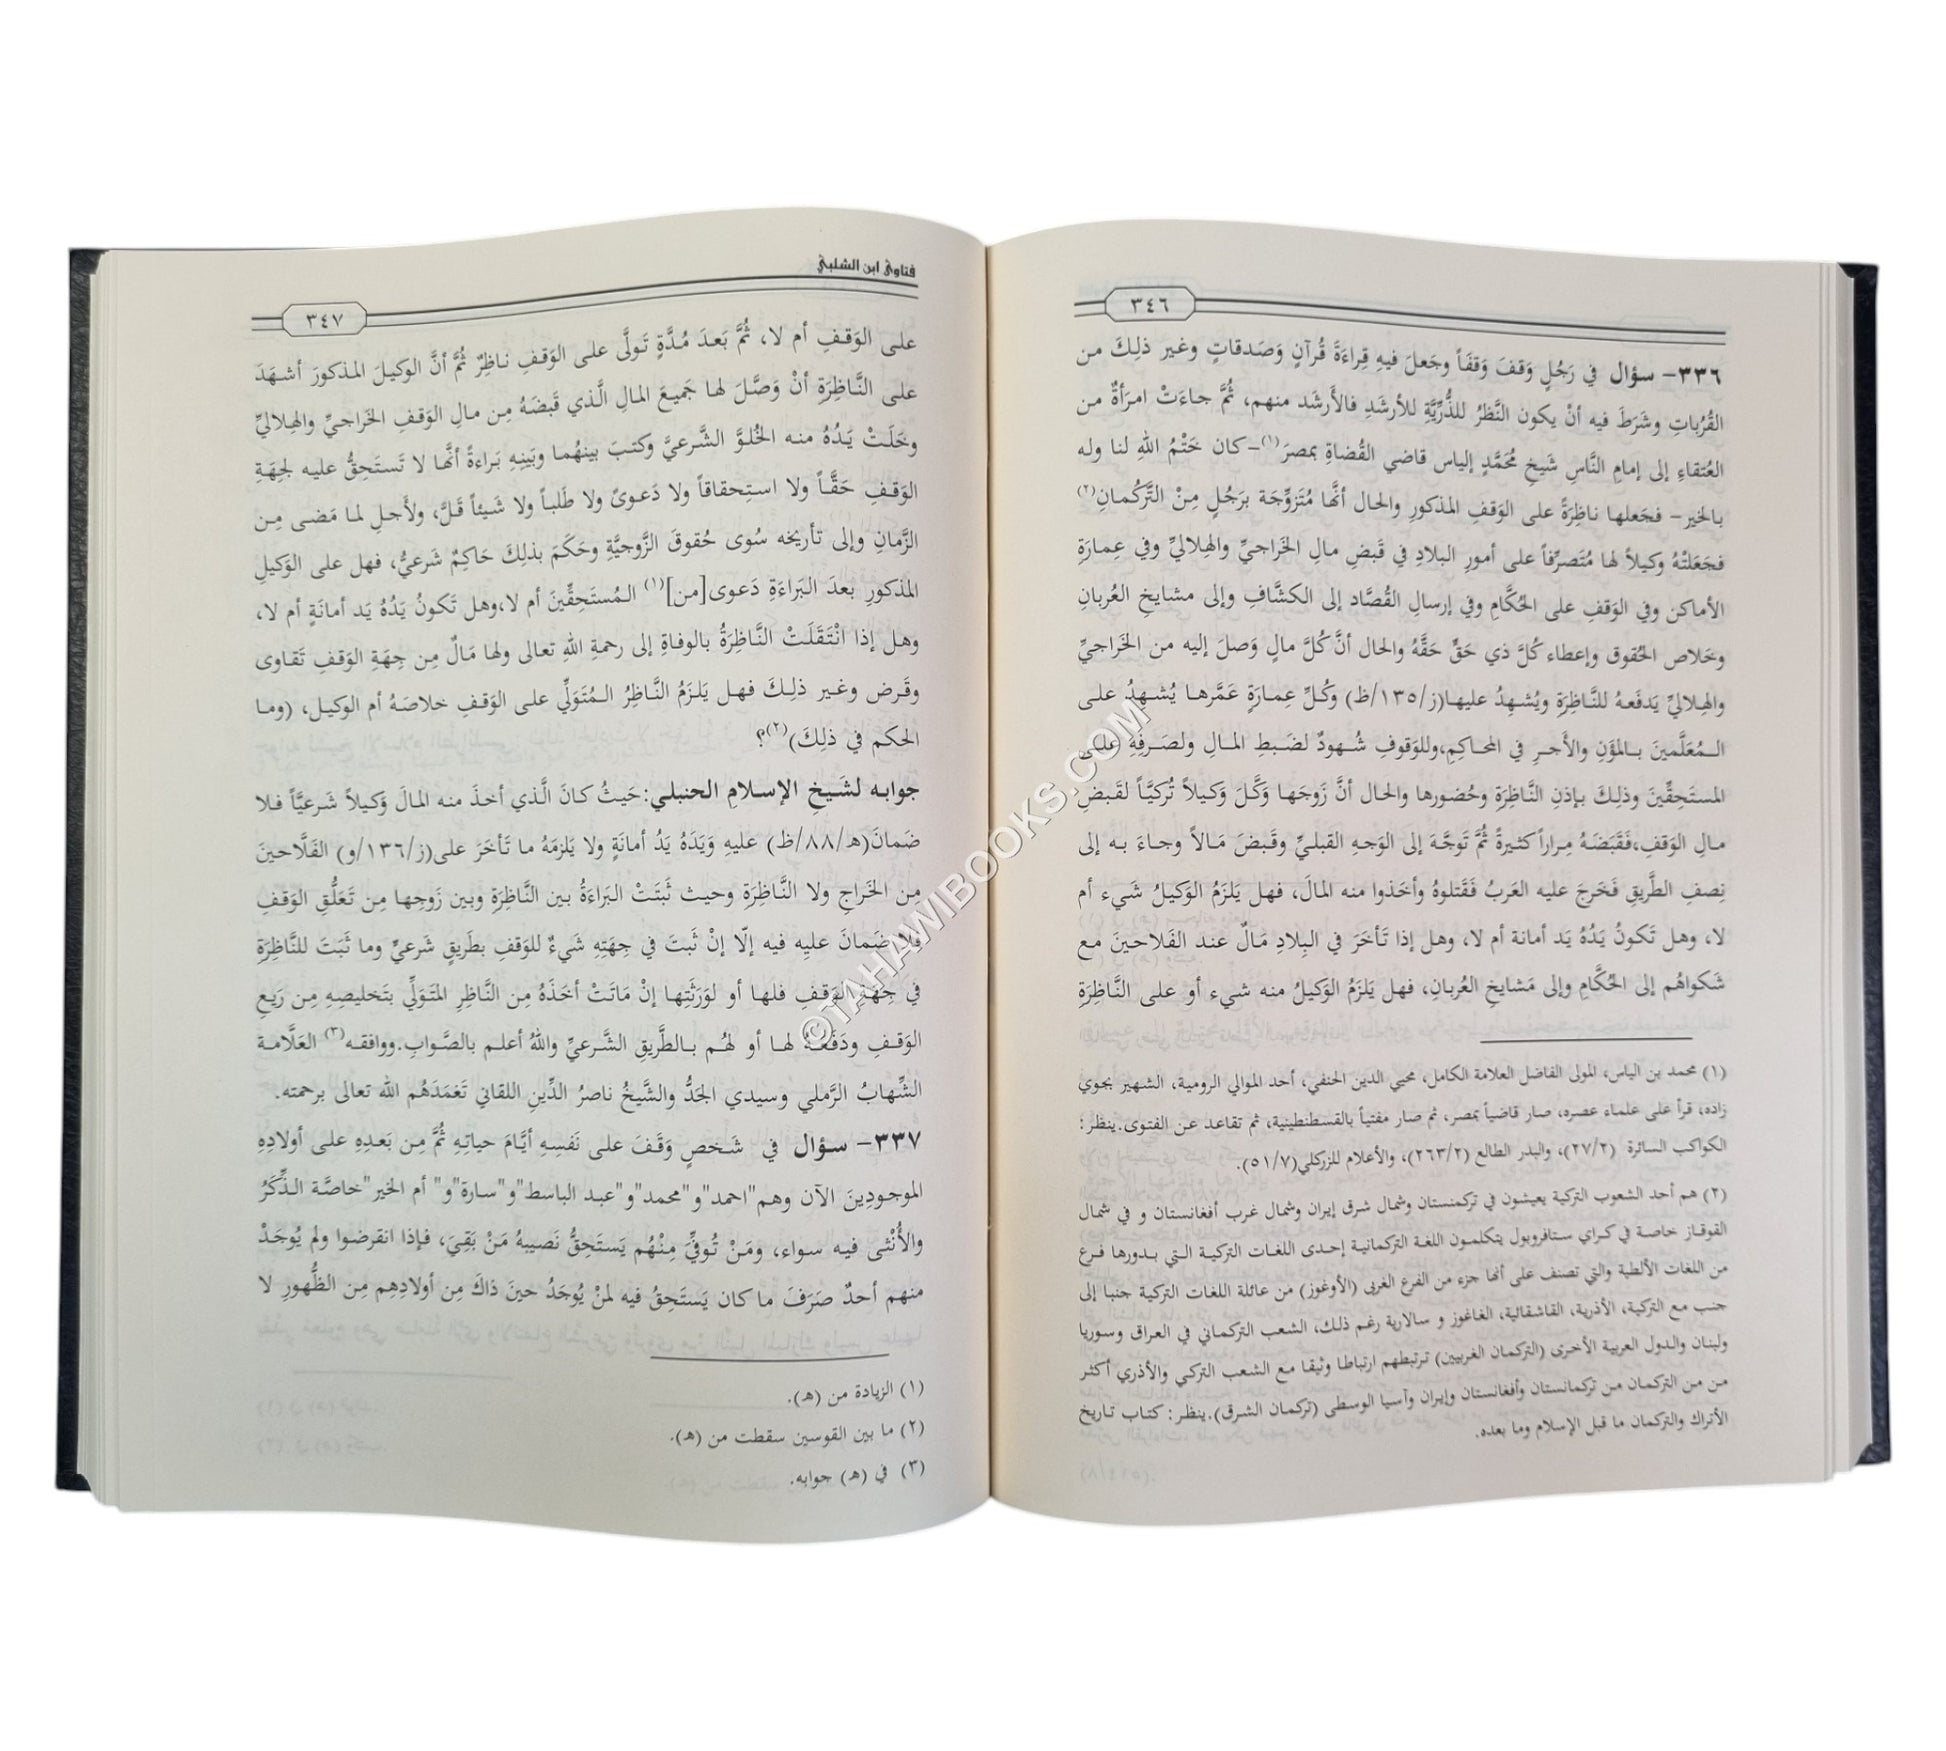 ٣٤٦
٣٣٦- سؤال في رَجُلٍ وَقفَ وَقفَاً وجَعلَ فيهِ قِراءَةَ قُرآنٍ وَصَدقاتٍ وغير ذلِكَ من
القُرُباتِ وشَرَطَ فيه أنْ يكون النَّظرُ للذُّرِّيَّةِ للأرشَدِ فالأرشَد منهم، ثُمَّ جاءَتْ امرَأةٌ من
العُتقاءِ إلى إمامِ النَّاسِ شَيخِ مُحَمَّدٍ إلياس قاضي القُضاةِ بمصرَ(١)- كان خَتْمُ اللهِ لنا وله
بالخيرِ- فجَعلها ناظِرَةً على الوَقفِ المذكورِ والحال أنَّها مُتَزوِّجَة برَجُلٍ مِنْ التَّركُمانِ(٢)
فجَعَلتْهُ وكيلاً لها مُتَصرِّفاً على أمورِ البلادِ في قَبضِ مالِ الخَراجيِّ والهِلاليِّ وفي عِمارَةِ
الأماكن وفي الوَقفِ على الحُكَّامِ وفي إرسالِ القُصَّاد إلى الكشَّافِ وإلى مشايخِ العُربانِ
وخَلاص الحُقوق وإعطاء كُلَّ ذي حَقٍّ حَقَّهُ والحال أنَّ كُلَّ مالٍ وَصلَ إليه من الخَراجيِّ
والهِلاليِّ يَدفَعهُ للنَّاظِرَةِ ويُشهِدُ عليها(ز/١٣٥/ظ) وكُلِّ عِمارَةٍ عَمَّرها يُشهِدُ على
المُعَلَّمينَ بالمؤَنِ والأجرِ في المحاكِمِ،وللوَقوفِ شُهودٌ لضَبطِ المالِ ولصَرفِهِ على
المستَحِقِّينَ وذلِكَ بإذنِ النَّاظِرَةِ وحُضورها والحال أنَّ زَوجَها وَكَّلَ وَكيلاً تُركيَّاً لقَبضِ
مالِ الوَقفِ،فَقَبَضَهُ مِراراً كثيرةً ثُمَّ تَوجَّهَ إلى الوَجهِ القبليِّ وقَبضَ مَالاً وجاءَ به إلى
نِصفِ الطَّريقِ فَخَرجَ عليه العَربُ فَقَتلوهُ وأخَذوا منه المالَ، فهل يَلزَمُ الوَكيلُ شَيء أم
لا، وهل تَكونُ يَدُهُ يَد أمانة أم لا، وهل إذا تَأخَرَ في البِلادِ مَالٌ عند الفَلاحينَ مع
شَكواهُم إلى الحُكَّامِ وإلى مَشايخِ العُربانِ، فهل يَلزَمُ الوَكيلُ منه شيء أو على النَّاظِرَةِ
(١) محمد بن الياس، المولى الفاضل العلامة الكامل، محيي الدين الحنفي، أحد الموالي الرومية، الشهير بجوي
زاده، قرأ على علماء عصره، صار قاضياً بمصر، ثم صار مفتياً بالقسطنطينية، ثم تقاعد عن الفتوى.ينظر:
الكواكب السائرة (٢٧/٢)، والبدر الطالع (٢٦٣/٢)، والأعلام للزركلي(٥١/٧).
(٢) هم أحد الشعوب التركية يعيشون في تركمنستان وشمال شرق إيران وشمال غرب أفغانستان و في شمال
القوقاز خاصة في كراي ستافروبول يتكلمون اللغة التركمانية إحدى اللغات التركية التي بدورها فرع
من اللغات الألطية والتي تصنف على أنها جزء من الفرع الغربي (الأوغوز) من عائلة اللغات التركية جنبا إلى
جنب مع التركية، الأذرية، القاشقائية، الغاغوز و سالارية رغم ذلك، الشعب التركماني في العراق وسوريا
ولبنان والدول العربية الأخرى (التركمان الغربيين) ترتبطهم ارتباطا وثيقا مع الشعب التركي والأذري أكثر
من من التركمان من تركمانستان وأفغانستان وإيران وآسيا الوسطى (تركمان الشرق).ينظر: كتاب تاريخ
الأتراك والتركمان ما قبل الإسلام وما بعده.
فتاوى ابن الشلبي
٣٤٧
على الوَقفِ أم لا، ثُمَّ بَعدَ مُدَّةٍ تَولَّى على الوَقفِ ناظِرٌ ثُمَّ أنَّ الوكيلَ المذكورَ أشهَدَ
على النَّاظِرَةِ أنْ وَصَّلَ لها جَميعَ المالِ الَّذي قَبضَهُ مِن مالِ الوَقفِ الخَراجيِّ والهِلاليِّ
وخَلَتْ يَدُهُ منه الخُلوَّ الشَّرعيَّ وكتبَ بينهُما وبَينِهِ بَراءةً أنَّها لا تَستَحِقُّ عليه لجِهَةِ
الوَقفِ حَقَّاً ولا استِحقاقاً ولا دَعوىً ولا طَلباً ولا شَيئاً قَلَّ، ولأجلِ لما مَضى مِن
الزَّمانِ وإلى تأريخه سُوى حُقوقَ الزَّوجيَّةِ وحَكَمَ بذلِكَ حَاكِمٌ شَرعيُّ، فهل على الوَكيلِ
المذكورِ بعدَ البَراءَةِ دَعوى[من](١) المُستَحِقِّينَ أم لا،وهل تَكونُ يَدُهُ يَد أمانَةٍ أم لا،
وهل إذا انْتَقَلَتْ النَّاظِرَةُ بالوفاةِ إلى رحمةِ اللهِ تعالى ولها مَالٌ مِن جِهَةِ الوَقفِ تَقاوى
وقَرض وغَير ذلِكَ فهل يَلزَمُ النَّاظِرُ المُتَوَلِّي على الوَقفِ خلاصَهُ أم الوكيل، (وما
الحكَم في ذلِكَ)(٢)؟
جوابه لشَيخِ الإسلامِ الحنبلي:حَيثُ كانَ الَّذي أخذَ منه المالَ وَكيلاً شَرعيَّاً فلا
ضَمانَ(هـ/٨٨/ظ) عليهِ وَيَدَهُ يَدُ أمانَةٍ ولا يَلزمَهُ ما تَأخَرَ على(ز/١٣٦/و) الفَلَّاحينَ
مِن الخَراجِ ولا النَّاظِرَةِ وحيث ثَبتَتْ البَراءَةُ بين النَّاظِرَةِ وبين زَوجِها مِن تَعَلُّقِ الوَقفِ
فلا ضَمانَ عليِه فيه إلّا إنْ ثَبتَ في جِهَتِهِ شَيءٌ للوَقفِ بطَريقٍ شَرعيٍّ وما ثَبَتَ للنَّاظِرَةِ
في جِهَةِ الوَقفِ فلها أو لوَرَثَتِها إنْ مَاتَتْ أخَذَهُ مِن النَّاظِرِ المتَوَلِّي بتَخليصِهِ مِن رَيعِ
الوَقفِ ودَفَعَهُ لها أو لهُم بالطَّريقِ الشَّرعيِّ واللهُ أعلم بالصَّوابِ.ووافقه(٣) العَلَّامة
الشِّهابُ الرَّملي وسيدي الجَدُّ والشَّيخُ ناصرُ الدِّينِ اللقاني تَغمَدَهُم الله تعالى برحمته.
٣٣٧- سؤال في شَخصٍ وَقَفَ على نَفسِهِ أيَّامَ حياتِهِ ثُمَّ مِن بَعدِهِ على أولادِهِ
الموجودِينَ الآن وهم"احمد"و"محمد"و"عبد الباسط"و"سارة"و" أم الخير"خاصَّة الذَّكَرُ
والأُنْثى فيه سواء، ومَنْ تُوفِّيَ مِنْهُم يَستَحِقُّ نَصيبهُ مَنْ بَقِيَ، فإذا انقرضوا ولم يُوجَدْ
منهم أحدٌ صَرَفَ ما كان يَستَحِقُ فيه لمنْ يُوجَدُ حينَ ذاكَ مِن أولادِهِم مِن الظُّهورِ لا
(١) الزيادة من (هـ).
(٢) ما بين القوسين سقطت من (هـ).
(٣) في (هـ) جوابه.
©TAHAWIBOOKS.COM